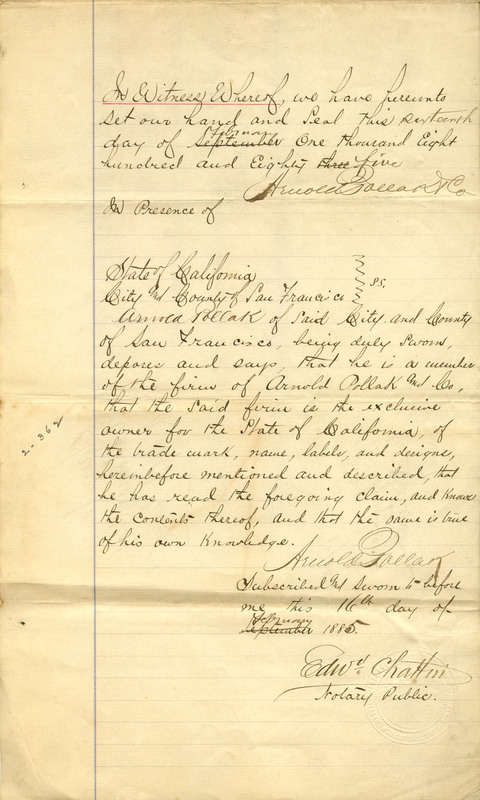 In Witness Whereof, we have hereunto
set our hand and Seal this sixteenth
February
day of September One Thousand Eight
hundred and Eighty three five
Arnold Pollak & Co
In Presence of
State of California
City and County of San Francisco } ss.
Arnold Pollak of said City and County
of San Francisco, being duly sworn,
deposes and says, that he is a member
of the firm of Arnold Pollak and Co,
that the said firm is the exclusive
owner for the State of California, of
the trade mark, name, labels, and designs,
hereinbefore mentioned and described, that
he has read the foregoing claim, and knows
the contents thereof, and that the same is true
of his own knowledge.
Arnold Pollak
Subscribed and sworn to before
me this 16th day of
February
September 1885.
Edwd Chattin
Notary Public.
2-362